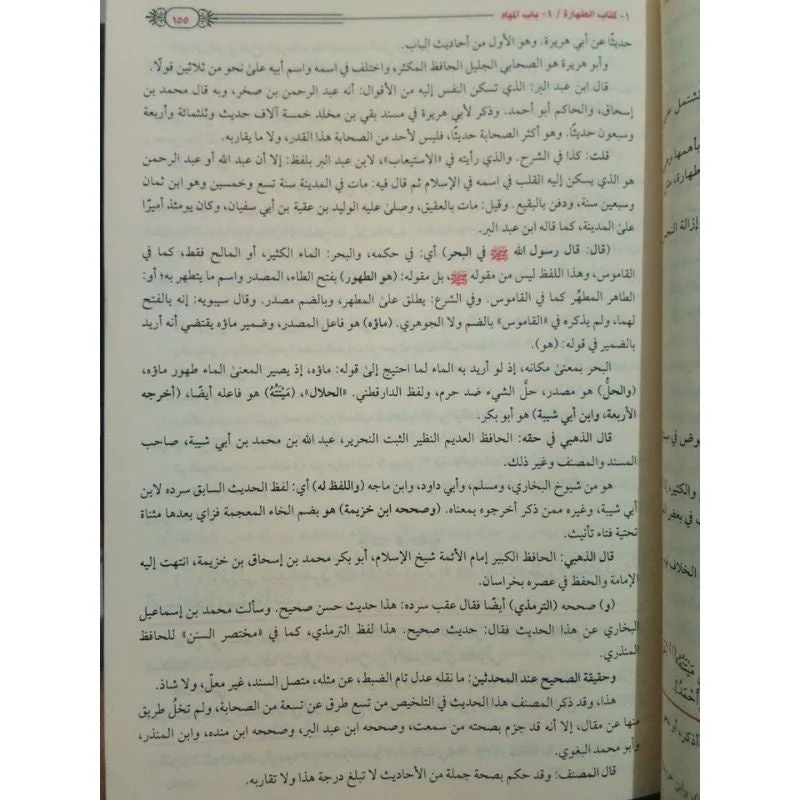 ١- كتاب الطهارة / ١- باب المياه
١٥٥
حديثًا عن أبي هريرة. وهو الأول من أحاديث الباب.
وأبو هريرة هو الصحابي الجليل الحافظ المكثر، واختلف في اسمه واسم أبيه على نحو من ثلاثين قولًا.
قال ابن عبد البر: الذي تسكن النفس إليه من الأقوال: أنه عبد الرحمن بن صخر، وبه قال محمد بن
إسحاق، والحاكم أبو أحمد. وذكر لأبي هريرة في مسند بقي بن مخلد خمسة آلاف حديث وثلثمائة وأربعة
وسبعون حديثًا. وهو أكثر الصحابة حديثًا، فليس لأحد من الصحابة هذا القدر، ولا ما يقاربه.
قلت: كذا في الشرح. والذي رأيته في «الاستيعاب»، لابن عبد البر بلفظ: إلا أن عبد الله أو عبد الرحمن
هو الذي يسكن إليه القلب في اسمه في الإسلام ثم قال فيه: مات في المدينة سنة تسع وخمسين وهو ابن ثمان
وسبعين سنة، ودفن بالبقيع. وقيل: مات بالعقيق، وصلى عليه الوليد بن عقبة بن أبي سفيان، وكان يومئذ أميرًا
على المدينة، كما قاله ابن عبد البر.
(قال: قال رسول الله ﷺ في البحر) أي: في حكمه، والبحر: الماء الكثير، أو المالح فقط، كما في
القاموس، وهذا اللفظ ليس من مقوله ﷺ، بل مقوله: (هو الطهور) بفتح الطاء، المصدر واسم ما يتطهر به؛ أو:
الطاهر المطهِّر كما في القاموس. وفي الشرع: يطلق على المطهر، وبالضم مصدر. وقال سيبويه: إنه بالفتح
لهما، ولم يذكره في «القاموس» بالضم ولا الجوهري. (ماؤه) هو فاعل المصدر، وضمير ماؤه يقتضي أنه أريد
بالضمير في قوله: (هو).
البحر بمعنى مكانه، إذ لو أريد به الماء لما احتيج إلى قوله: ماؤه، إذ يصير المعنى الماء طهور ماؤه،
(والحلُّ) هو مصدر، حلَّ الشيء ضد حرم، ولفظ الدارقطني. «الحلال»، (مَيْتَتُهُ) هو فاعله أيضًا، (أخرجه
الأربعة، وابن أبي شيبة) هو أبو بكر.
قال الذهبي في حقه: الحافظ العديم النظير الثبت النحرير، عبد الله بن محمد بن أبي شيبة، صاحب
المسند والمصنف وغير ذلك.
هو من شيوخ البخاري، ومسلم، وأبي داود، وابن ماجه (واللفظ له) أي: لفظ الحديث السابق سرده لابن
أبي شيبة، وغيره ممن ذكر أخرجوه بمعناه. (وصححه ابن خزيمة) هو بضم الخاء المعجمة فزاي بعدها مثناة
تحتية فتاء تأنيث.
قال الذهبي: الحافظ الكبير إمام الأئمة شيخ الإسلام، أبو بكر محمد بن إسحاق بن خزيمة، انتهت إليه
الإمامة والحفظ في عصره بخراسان.
(و) صححه (الترمذي) أيضًا فقال عقب سرده: هذا حديث حسن صحيح. وسألت محمد بن إسماعيل
البخاري عن هذا الحديث فقال: حديث صحيح. هذا لفظ الترمذي، كما في «مختصر السنن» للحافظ
المنذري.
وحقيقة الصحيح عند المحدثين: ما نقله عدل تام الضبط، عن مثله، متصل السند، غير معلّ، ولا شاذ.
هذا، وقد ذكر المصنف هذا الحديث في التلخيص من تسع طرق عن تسعة من الصحابة، ولم تخلُ طريق
منها عن مقال، إلا أنه قد جزم بصحته من سمعت، وصححه ابن عبد البر، وصححه ابن منده، وابن المنذر،
وأبو محمد البغوي.
قال المصنف: وقد حكم بصحة جملة من الأحاديث لا تبلغ درجة هذا ولا تقاربه.